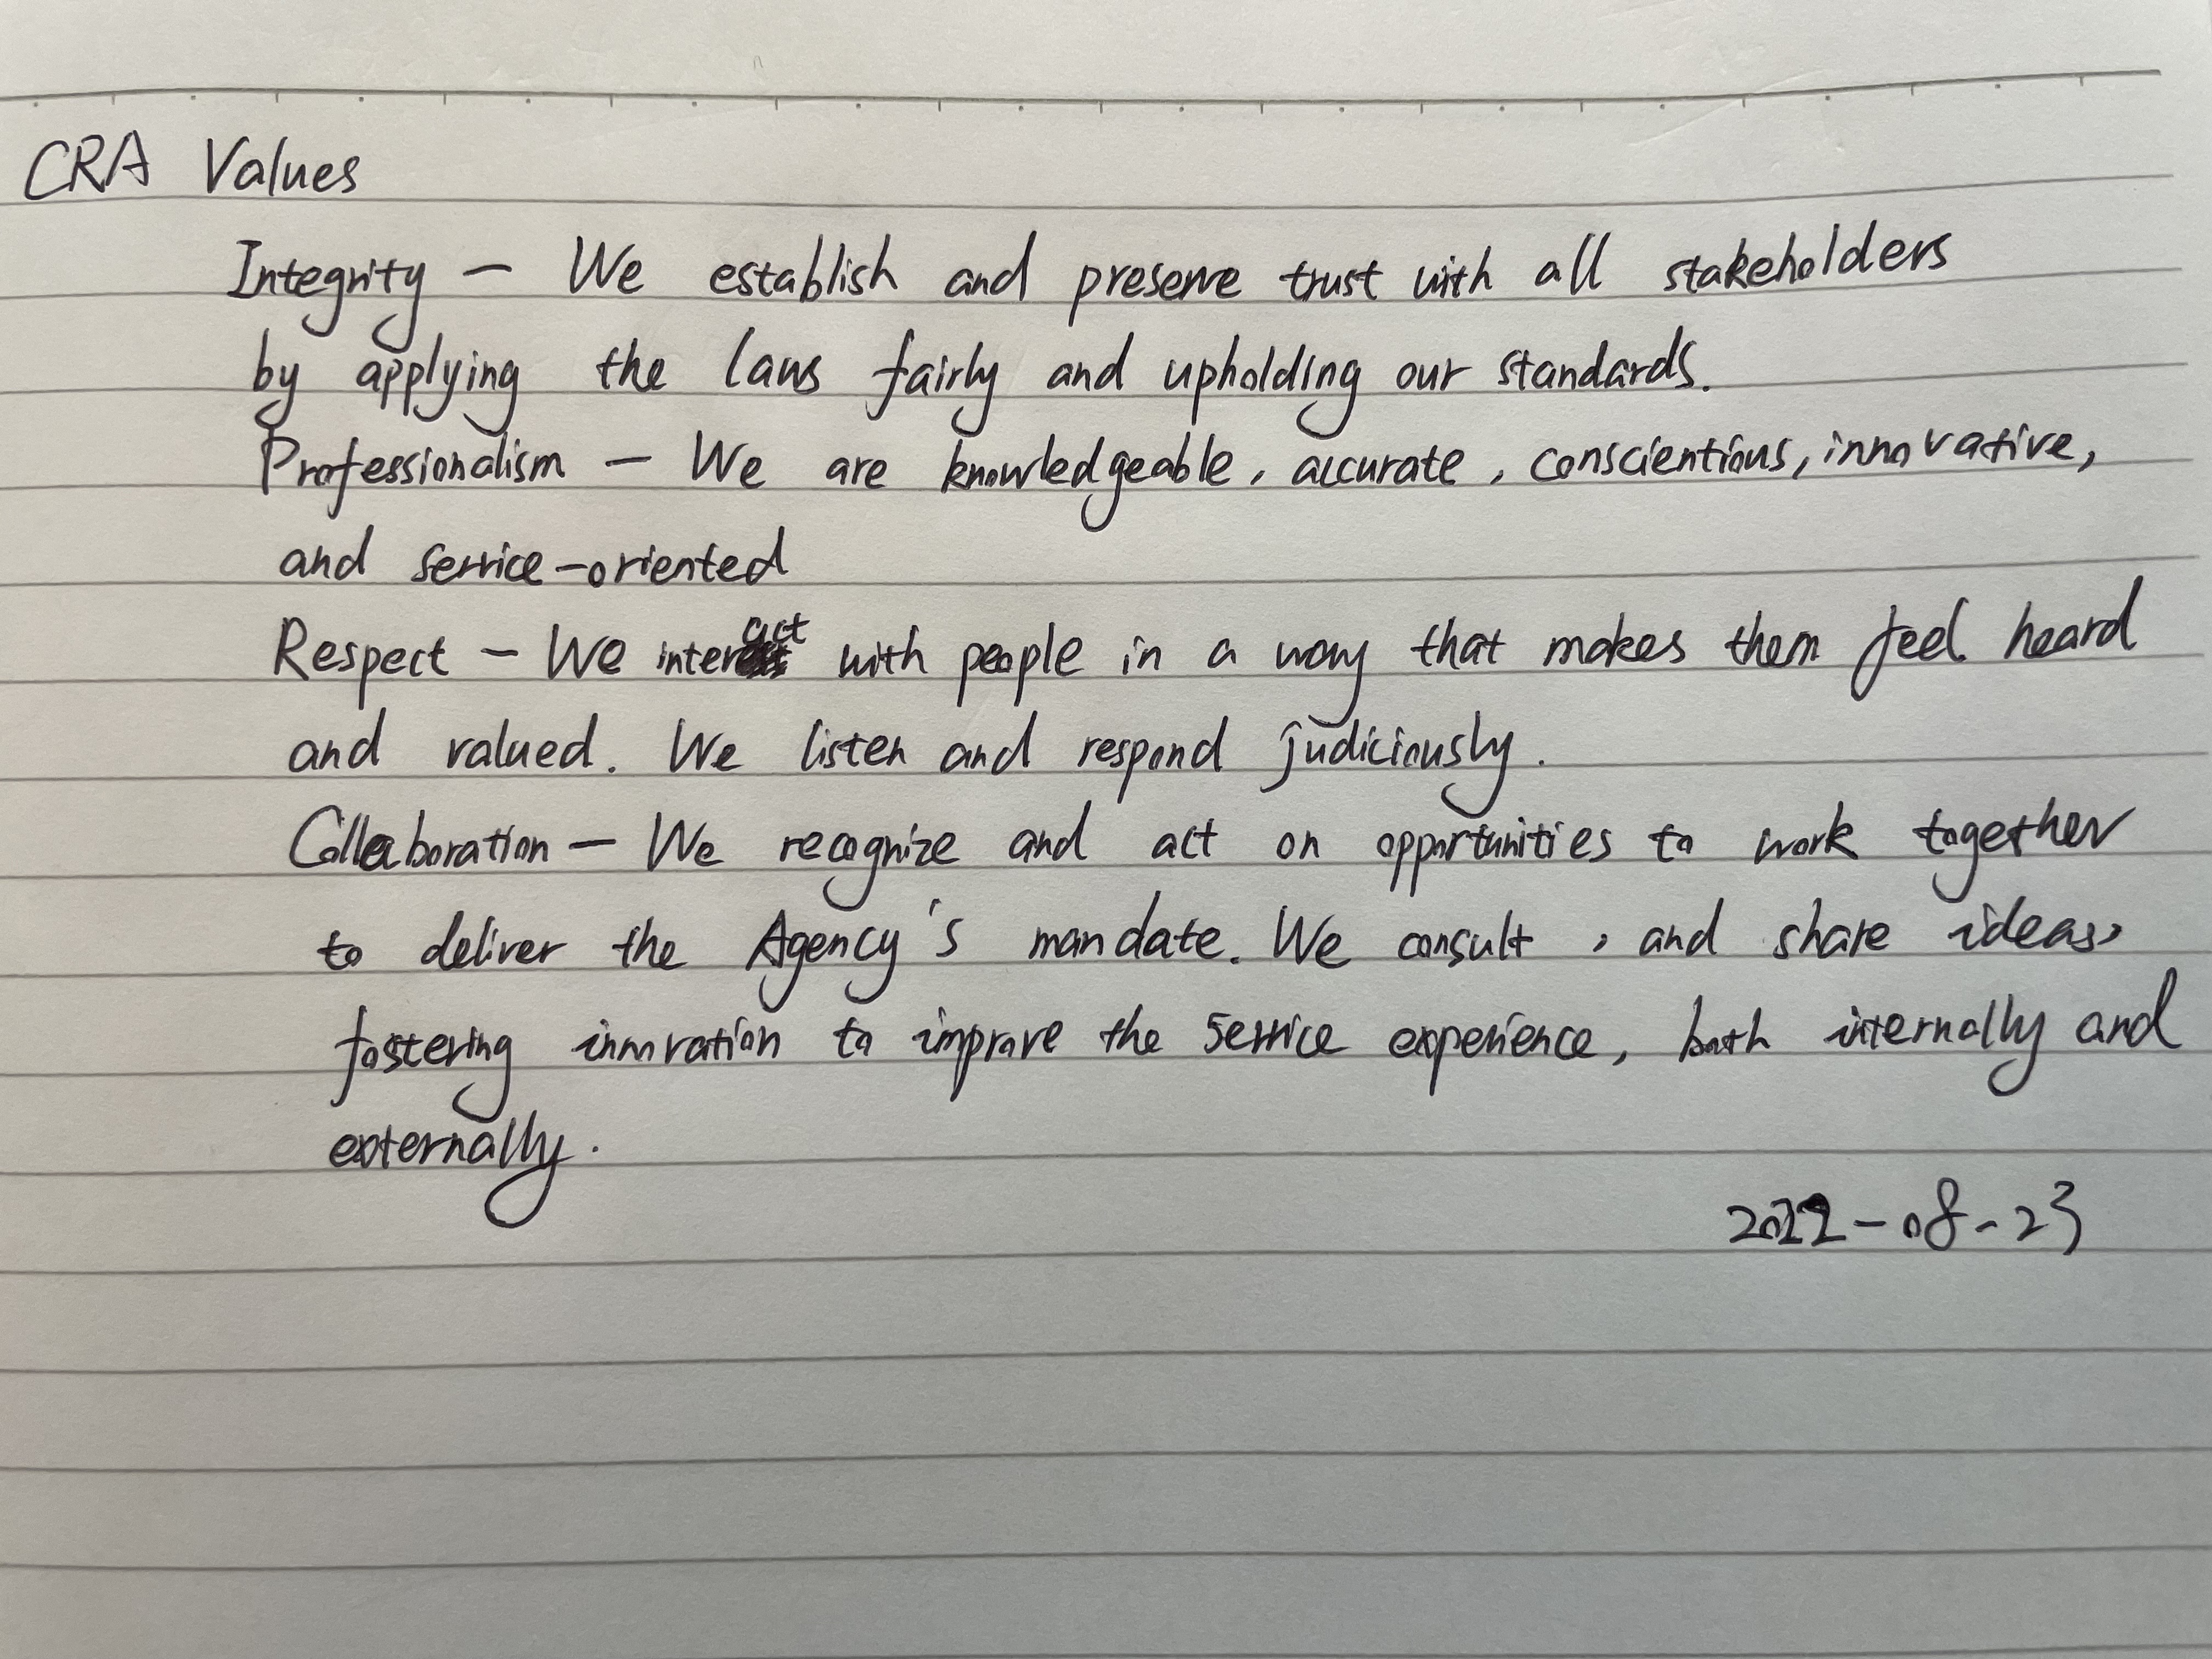 CRA Values
Integrity — We establish and preserve trust with all stakeholders
by applying the laws fairly and upholding our standards.
Professionalism — We are knowledgeable, accurate, conscientious, innovative,
and service-oriented
Respect — We interact with people in a way that makes them feel heard
and valued. We listen and respond judiciously.
Collaboration — We recognize and act on opportunities to work together
to deliver the Agency's mandate. We consult, and share ideas,
fostering innovation to improve the service experience, both internally and
externally.
2022-08-23